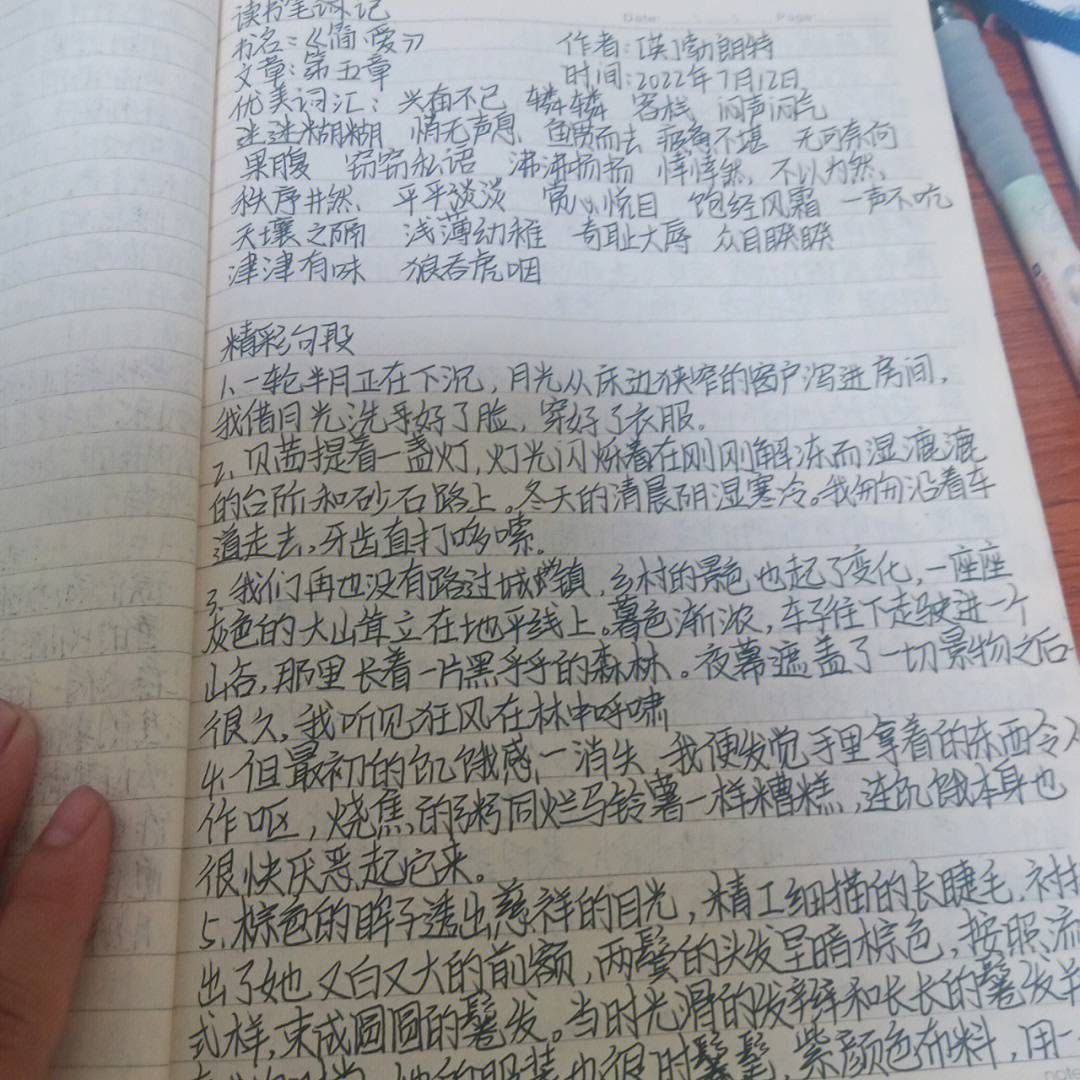 Date: Page:
读书笔记
书名:《简·爱》 作者:[英]勃朗特
文章:第五章 时间:2022年7月12日
优美词汇: 兴奋不已 辚辚 客栈 闷声闷气
迷迷糊糊 悄无声息 鱼贯而去 疲惫不堪 无可奈何
果腹 窃窃私语 沸沸扬扬 悻悻然、不以为然、
秩序井然、平平淡淡 赏心悦目 饱经风霜 一声不吭
天壤之隔 浅薄幼稚 奇耻大辱 众目睽睽
津津有味 狼吞虎咽
精彩句段
1、一轮半月正在下沉,月光从床边狭窄的窗户泻进房间,
我借月光洗好了脸,穿好了衣服。
2、贝茜提着一盏灯,灯光闪烁着在刚刚解冻而湿漉漉
的台阶和砂石路上。冬天的清晨阴湿寒冷。我匆匆沿着车
道走去,牙齿直打哆嗦。
3、我们再也没有路过城镇,乡村的景色也起了变化,一座座
灰色的大山耸立在地平线上。暮色渐浓,车子往下走驶进一个
山谷,那里长着一片黑乎乎的森林。夜幕遮盖了一切景物之后
很久,我听见狂风在林中呼啸
4、但最初的饥饿感一消失,我便发觉手里拿着的东西令人
作呕,烧焦的粥同烂马铃薯一样糟糕,连饥饿本身也
很快厌恶起它来。
5、棕色的眸子透出慈祥的目光,精工细描的长睫毛,衬托
出了她又白又大的前额,两鬓的头发呈暗棕色,按照流
式样,束成圆圆的鬈发。当时光滑的发辫和长长的鬈发并
她的服装也很时髦,紫颜色布料,用
note